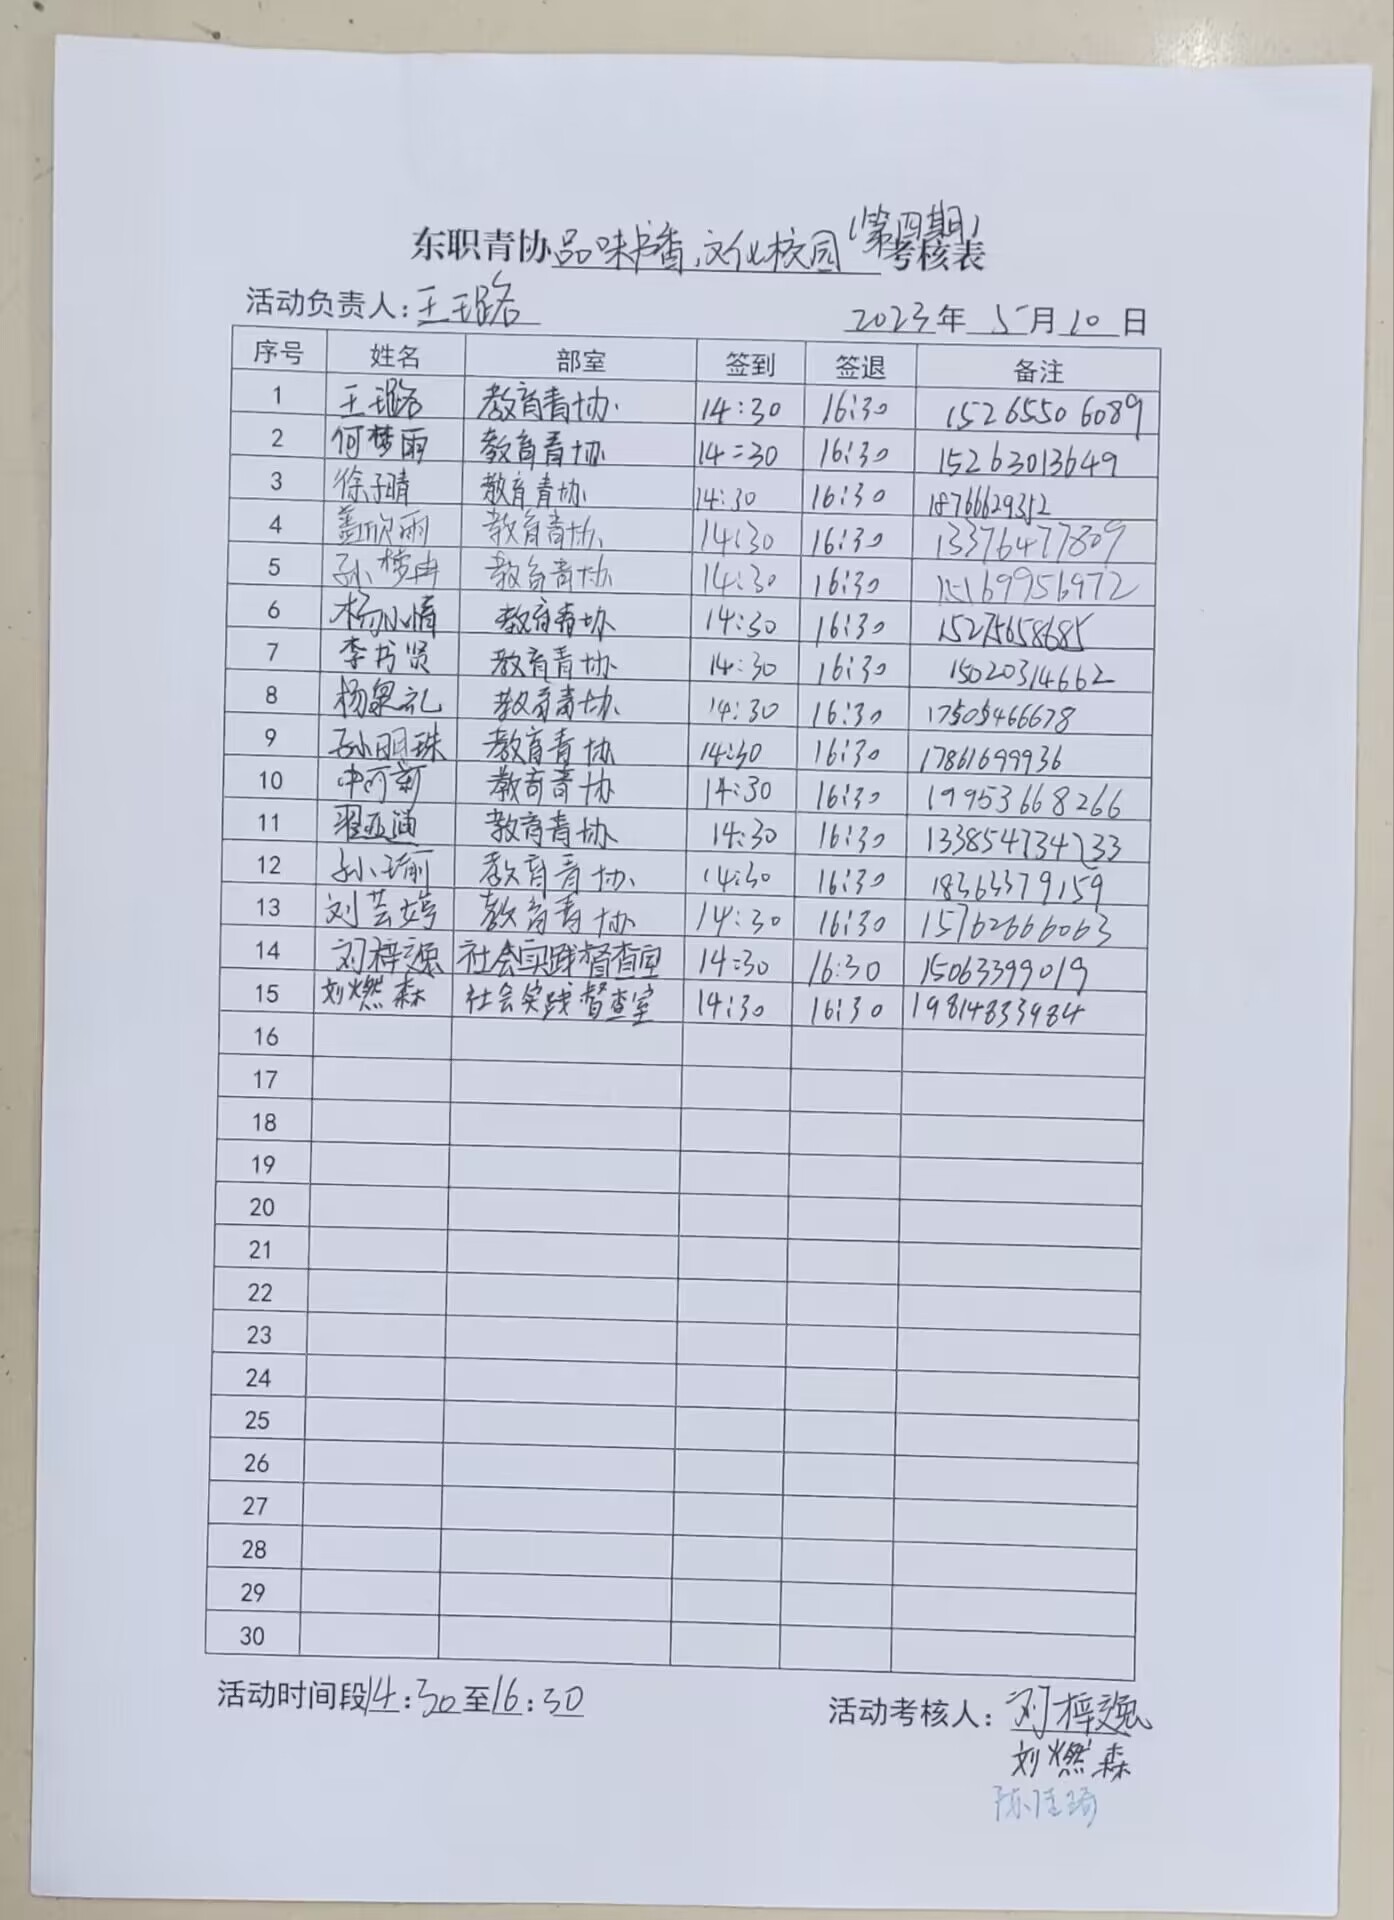 (第四期)
东职青协品味书香,文化校园考核表
活动负责人:王璐
2023年 5月10日
序号 姓名 部室 签到 签退 备注
1 王璐 教育青协 14:30 16:30 15265506089
2 何梦雨 教育青协 14:30 16:30 15263013649
3 徐子晴 教育青协 14:30 16:30 18766629352
4 盖欣雨 教育青协 14:30 16:30 13376477809
5 孙梦冉 教育青协 14:30 16:30 15169956972
6 杨小倩 教育青协 14:30 16:30 15275658685
7 李书贤 教育青协 14:30 16:30 15020314662
8 杨泉礼 教育青协 14:30 16:30 17505466678
9 孙明珠 教育青协 14:30 16:30 17861699936
10 教育青协 14:30 16:30 19953668266
11 翟亚涵 教育青协 14:30 16:30
12 孙瑜 教育青协 14:30 16:30 18363379159
13 刘芸婷 教育青协 14:30 16:30 15762666063
14 刘梓逸 社会实践督查室 14:30 16:30 15063399019
15 刘燃森 社会实践督查室 14:30 16:30 19814833984
16
17
18
19
20
21
22
23
24
25
26
27
28
29
30
活动时间段14:30至16:30
活动考核人:刘梓逸
刘燃森
陈佳琦